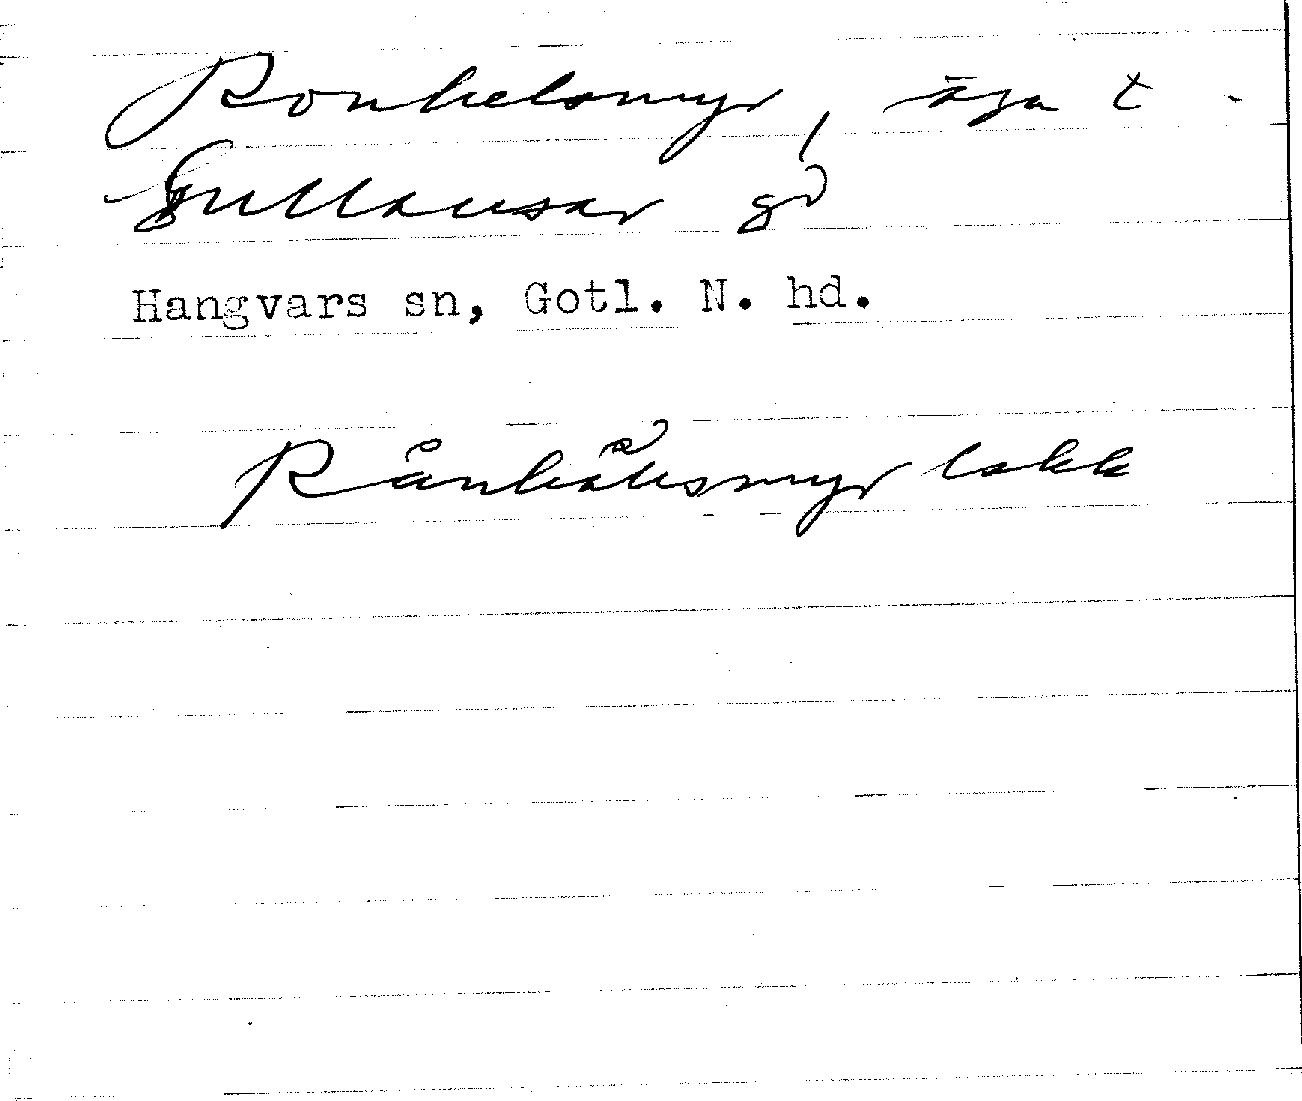 Ronhelsmyr, äga t -
Gullausar gd
Hangvars sn, Gotl. N. hd.
Rånhälsmyr lakk